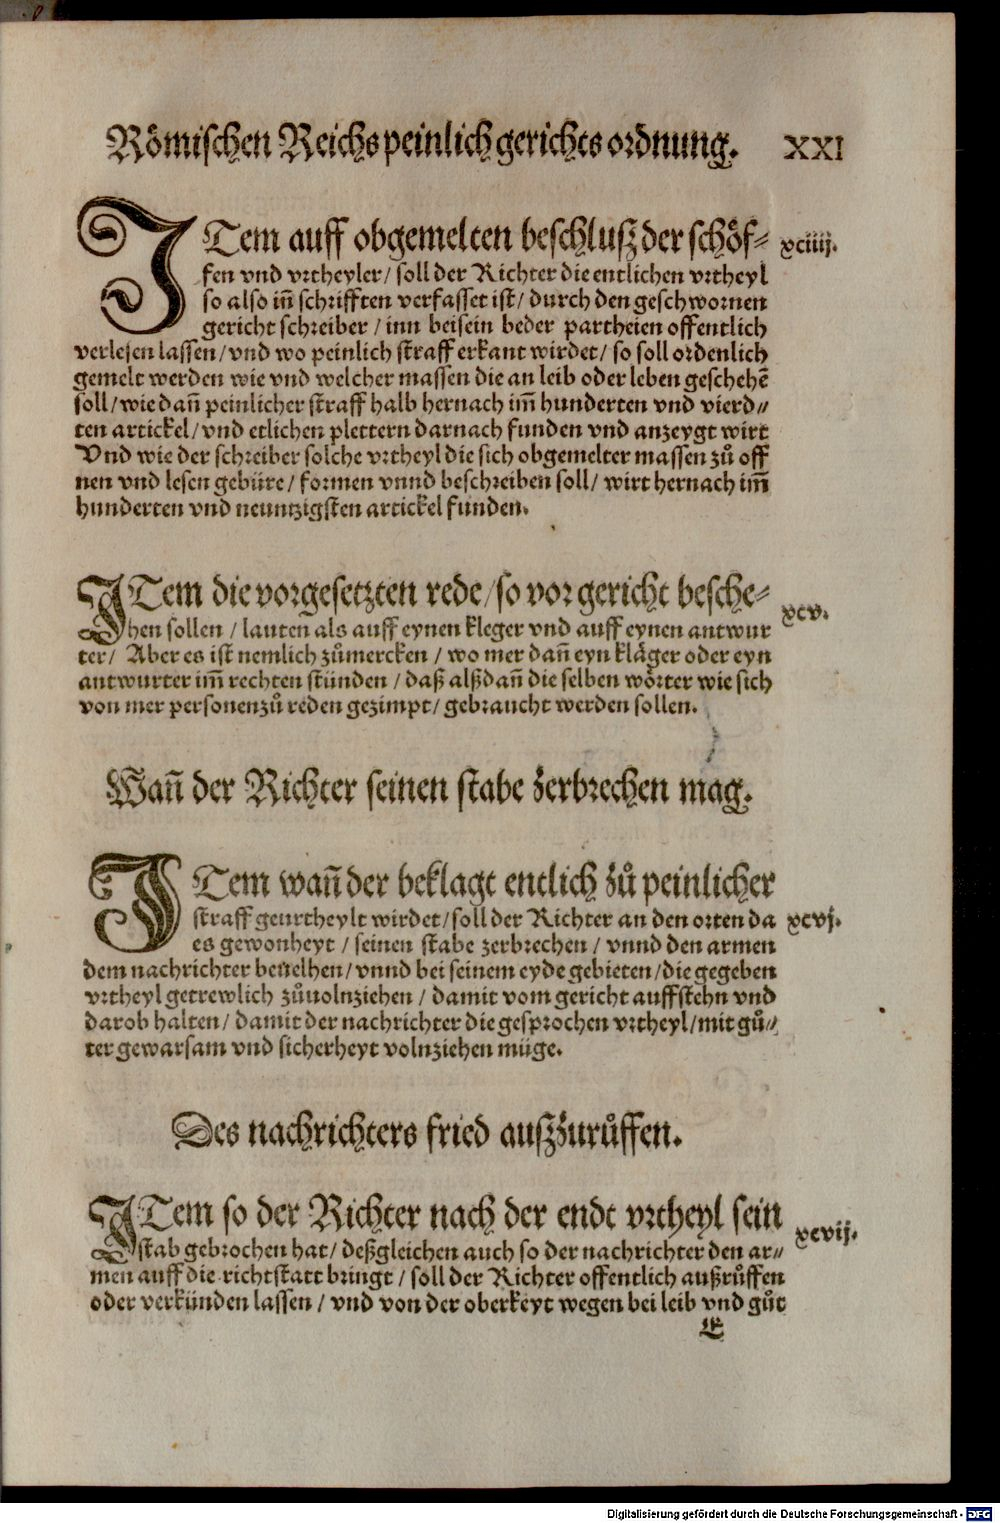 Römischen Reichs peinlich gerichts ordnung. XXI
ITem auff obgemelten beschlusz der schöf- xciiij.
fen vnd vrtheyler / soll der Richter die entlichen vrtheyl
so also iñ schrifften verfasset ist / durch den geschwornen
gericht schreiber / inn beisein beder partheien offentlich
verlesen lassen / vnd wo peinlich straff erkant wirdet / so soll ordenlich
gemelt werden wie vnd welcher massen die an leib oder leben geschehē
soll / wie dañ peinlicher straff halb hernach im̃ hunderten vnd vierd-
ten artickel / vnd etlichen plettern darnach funden vnd anzeygt wirt
Vnd wie der schreiber solche vrtheyl die sich obgemelter massen zů öff
nen vnd lesen gebüre / formen vnnd beschreiben soll / wirt hernach im̃
hunderten vnd neuntzigsten artickel funden.
ITem die vorgesetzten rede / so vor gericht besche- xcv.
hen sollen / lauten̄ als auff eynen kleger vnd auff eynen antwur
ter / Aber es ist nemlich zůmercken / wo mer dañ eyn kläger oder eyn
antwurter im̃ rechten stünden / daß alßdañ die selben wörter wie sich
von mer personen zů reden gezimpt / gebraucht werden sollen.
Wañ der Richter seinen stabe zerbrechen mag.
ITem wañ der beklagt entlich zů peinlicher
straff geurtheylt wirdet / soll der Richter an den orten da xcvj.
es gewonheyt / seinen stabe zerbrechen / vnnd den armen
dem nachrichter beuelhen / vnnd bei seinem eyde gebieten / die gegeben
vrtheyl getrewlich zůuolnziehen / damit vom gericht auffstehn vnd
darob halten / damit der nachrichter die gesprochen vrtheyl / mit gů-
ter gewarsam vnd sicherheyt volnziehen müge.
Des nachrichters fried ausz zurůffen.
ITem so der Richter nach der endt vrtheyl sein
stab gebrochen hat / deßgleichen auch so der nachrichter den ar- xcvij.
men auff die richtstatt bringt / soll der Richter offentlich außrůffen
oder verkünden lassen / vnd von der oberkeyt wegen bei leib vnd gůt
E
Digitalisierung gefördert durch die Deutsche Forschungsgemeinschaft - DFG